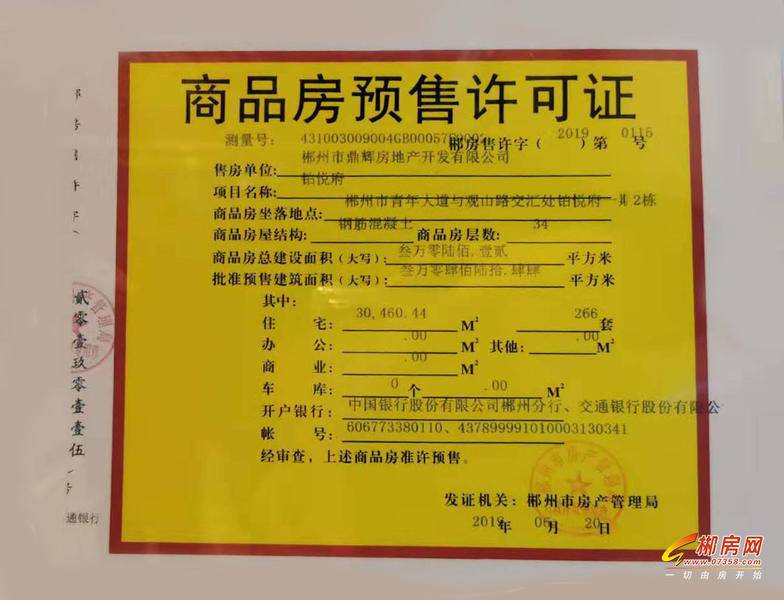 商品房预售许可证
测量号: 431003009004GB00057F0002
郴房售许字(2019)第0115号
售房单位: 郴州市鼎辉房地产开发有限公司
项目名称: 铂悦府
商品房坐落地点: 郴州市青年大道与观山路交汇处铂悦府一期2栋
商品房屋结构: 钢筋混凝土 商品房层数: 34
商品房总建设面积(大写): 叁万零陆佰.壹贰 平方米
批准预售建筑面积(大写): 叁万零肆佰陆拾.肆肆 平方米
其中:
住 宅: 30,460.44 M² 266 套
办 公: .00 M² 其他: .00 M²
商 业: .00 M²
车 库: 0 个 .00 M²
开户银行: 中国银行股份有限公司郴州分行、交通银行股份有限公
帐 号: 606773380110、437899991010003130341
经审查,上述商品房准许预售。
发证机关: 郴州市房产管理局
2019年 05月 20日
贰零壹玖零壹壹伍
号
通银行
郴房网
www.07358.com
一切由房开始